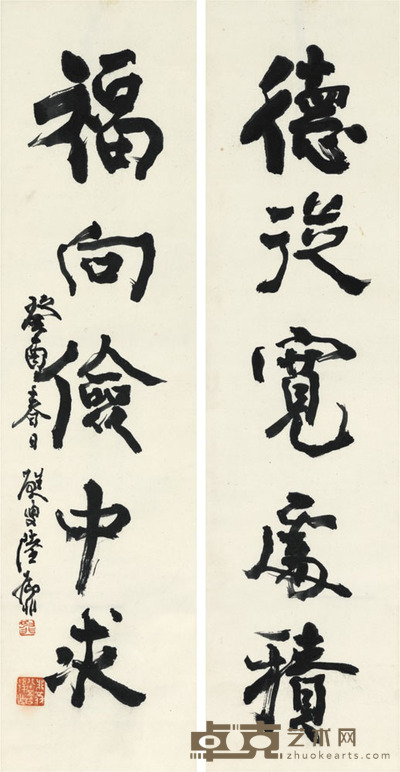 德從寬處積
福向儉中求
癸酉春日
陸
卓克艺术网
zhuokearts.com